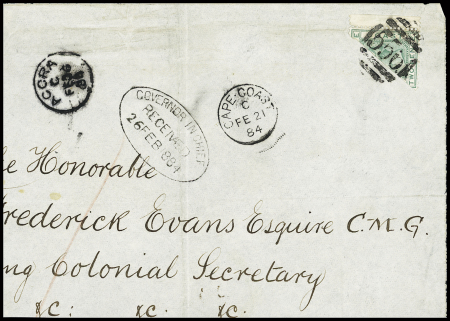 ACCRA
C
GOVERNOR IN CHIEF
RECEIVED
26 FEB 884
CAPE-COAST
C
FE 21
84
556
he Honorable
Frederick Evans Esquire C.M.G.
ng Colonial Secretary
&c: &c. &c.